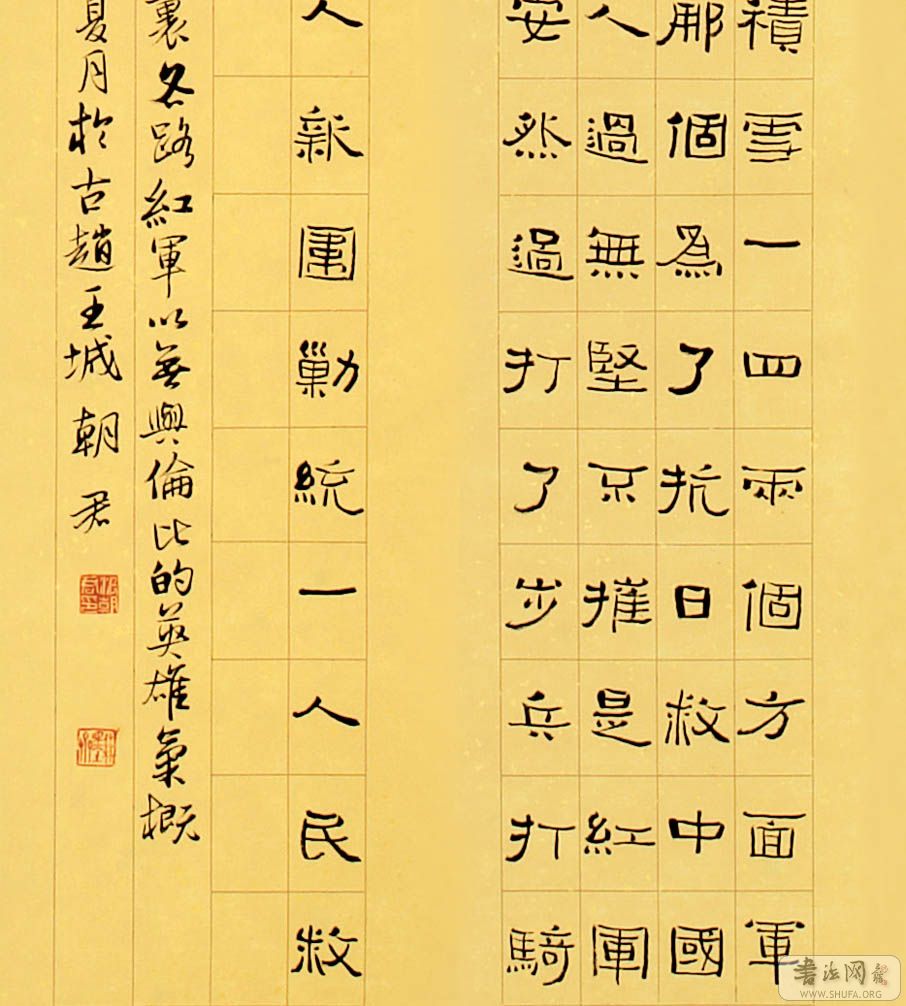 積雪一四兩個方面軍
那個為了抗日救中國
人過無堅不摧是紅軍
安然過打了步兵打騎
人新團勦統一人民救
裏各路紅軍以無與倫比的英雄氣概
夏月於古趙王城朝君
書法网
WWW.SHUFA.ORG